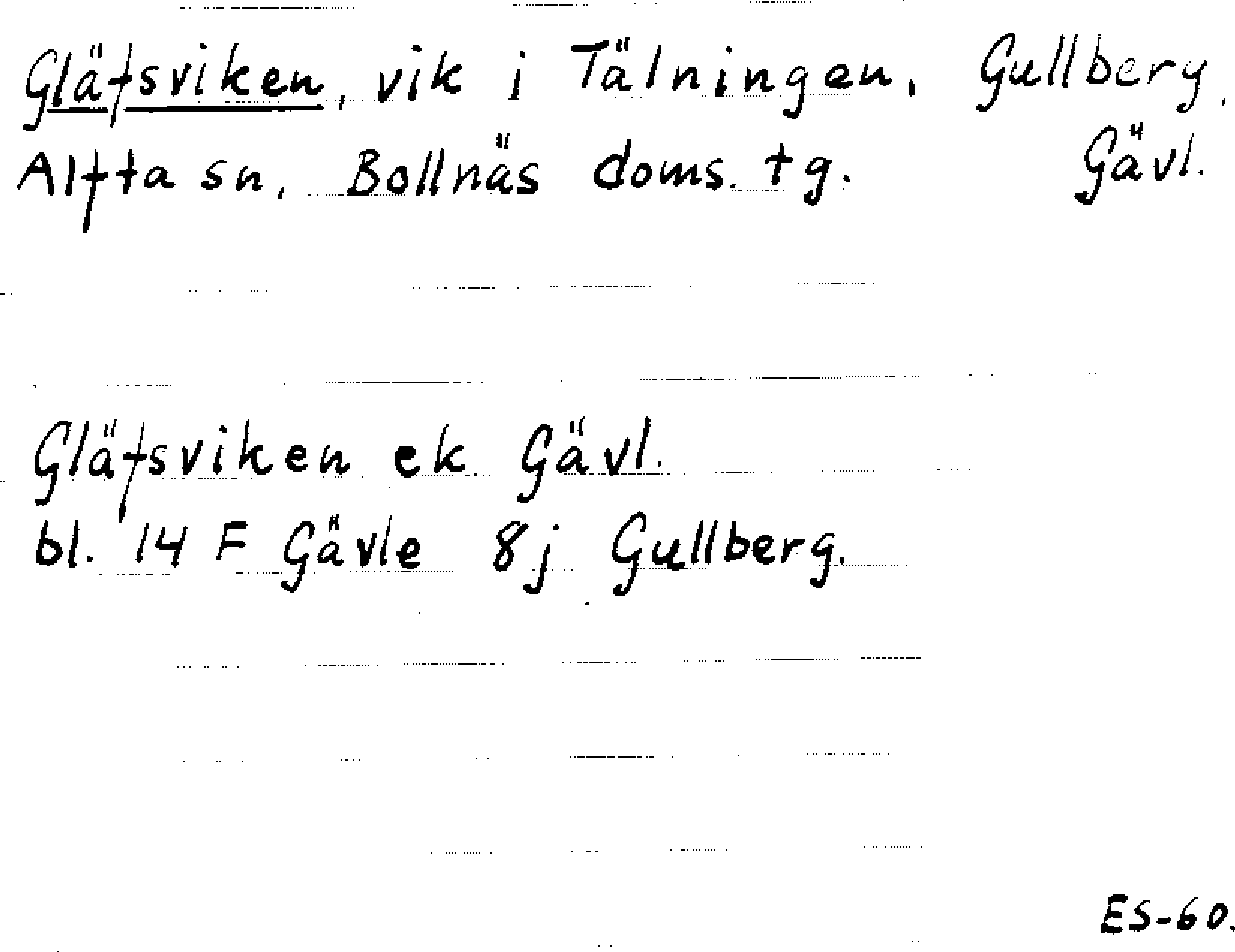 Gläfsviken, vik i Tälningen, Gullberg,
Alfta sn, Bollnäs doms. tg. Gävl.
Gläfsviken ek Gävl.
bl. 14 F Gävle 8j Gullberg.
ES-60.